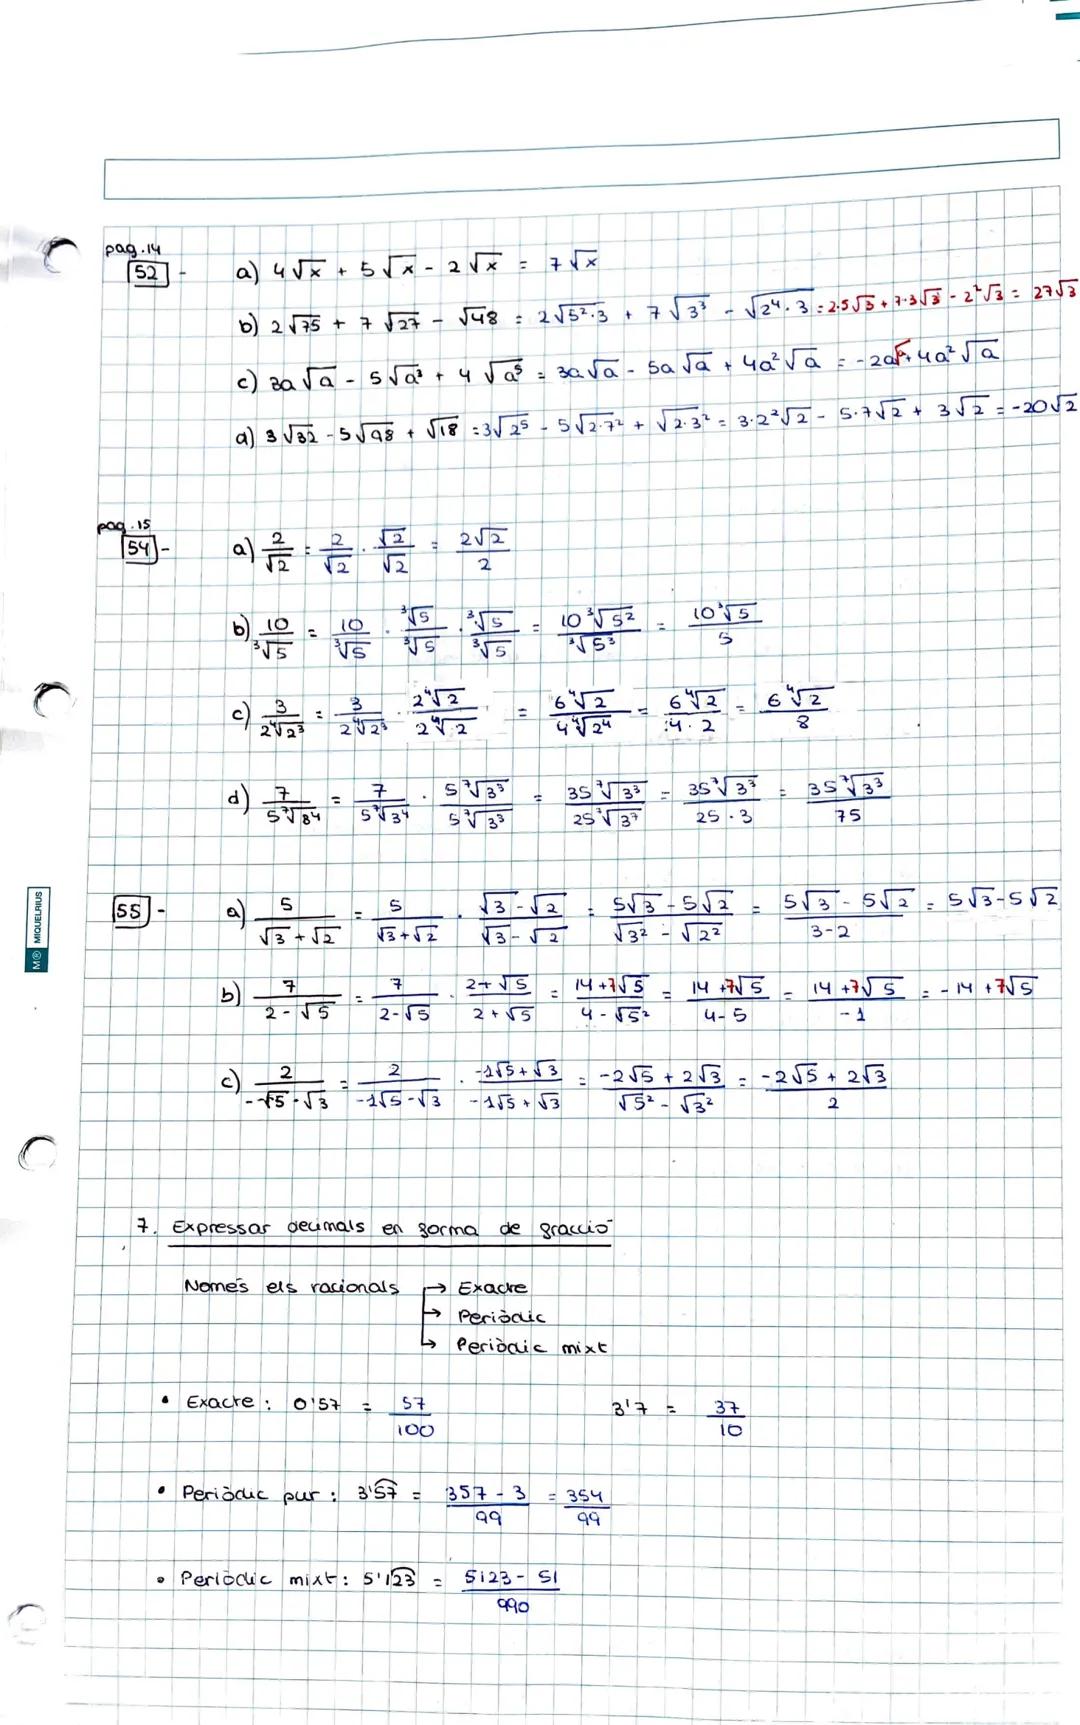 pag.14
52 - a) 4√x + 5√x - 2√x = 7√x
b) 2√75 + 7√27 - √48 = 2√5²·3 + 7√3³ - √2⁴·3 = 2·5√3 + 7·3√3 - 2²√3 = 27√3
c) 3a√a - 5√a³ + 4√a⁵ = 3a√a - 5a√a + 4a²√a = -2a√a + 4a²√a
d) 3√32 - 5√98 + √18 = 3√2⁵ - 5√2·7² + √2·3² = 3·2²√2 - 5·7√2 + 3√2 = -20√2
pag.15
54 - a) 2/√2 = 2/√2 · √2/√2 = 2√2/2
b) 10/³√5 = 10/³√5 · ³√5/³√5 · ³√5/³√5 = 10³√5²/³√5³ = 10³√5/5
c) 3/2⁴√2³ = 3/2⁴√2³ · 2⁴√2/2⁴√2 = 6⁴√2/4⁴√2⁴ = 6⁴√2/4·2 = 6⁴√2/8
d) 7/5⁷√84 = 7/5⁷√3⁴ · 5⁷√3³/5⁷√3³ = 35⁷√3³/25⁷√3⁷ = 35⁷√3³/25·3 = 35⁷√3³/75
55 - a) 5/√3+√2 = 5/√3+√2 · √3-√2/√3-√2 = 5√3-5√2/√3²-√2² = 5√3-5√2/3-2 = 5√3-5√2
b) 7/2-√5 = 7/2-√5 · 2+√5/2+√5 = 14+7√5/4-√5² = 14+7√5/4-5 = 14+7√5/-1 = -14+7√5
c) 2/-√5-√3 = 2/-1√5-√3 · -1√5+√3/-1√5+√3 = -2√5+2√3/√5²-√3² = -2√5+2√3/2
M® MIQUELRIUS
7. Expressar decimals en forma de fracció
Només els racionals → Exacte
→ Periòdic
→ Periòdic mixt
• Exacte: 0'57 = 57/100 3'7 = 37/10
• Periòdic pur: 3'5͡7 = 357-3/99 = 354/99
• Periòdic mixt: 5'12͡3 = 5123-51/990